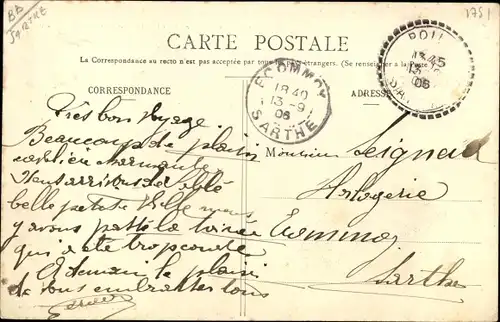 BB
SARTHE
1751
CARTE POSTALE
La Correspondance au recto n'est pas acceptée par tous pays étrangers. (Se renseigner à la Poste)
CORRESPONDANCE
ADRESSE
ECOMMOY
18 40
13 - 9
06
SARTHE
13 45
06
Très bon voyage
Beaucoup de plaisir
charmante
Nous arrivons de
belle petite Ville nous
y avons passé la soirée
qui a été trop courte
A demain le plaisir
de vous embrasser tous
Monsieur Seigneur
Horlogerie
Ecommoy
Sarthe